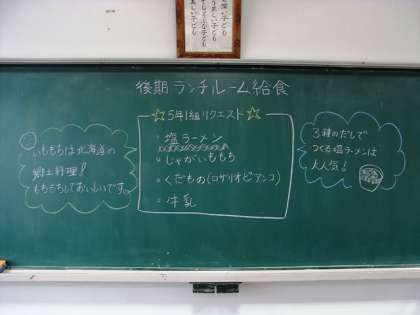 後期ランチルーム給食
☆5年1組リクエスト☆
塩ラーメン
じゃがいももち
くだもの(ロザリオビアンコ)
牛乳
いももちは北海道の
郷土料理!
もちもちしておいしいです。
3種のだしで
つくる塩ラーメンは
大人気!